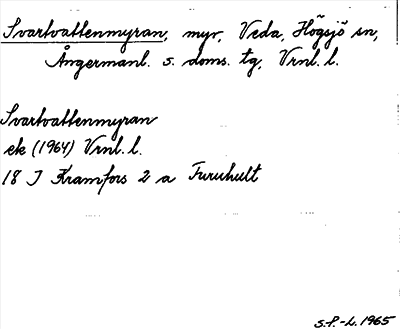 Svartvattenmyran, myr, Veda, Högsjö sn,
Ångermanl. s. doms. tg, Vrnl. l.
Svartvattenmyran
ek (1964) Vrnl. l.
18 J Kramfors 2 a Furuhult
S.P.-L. 1965